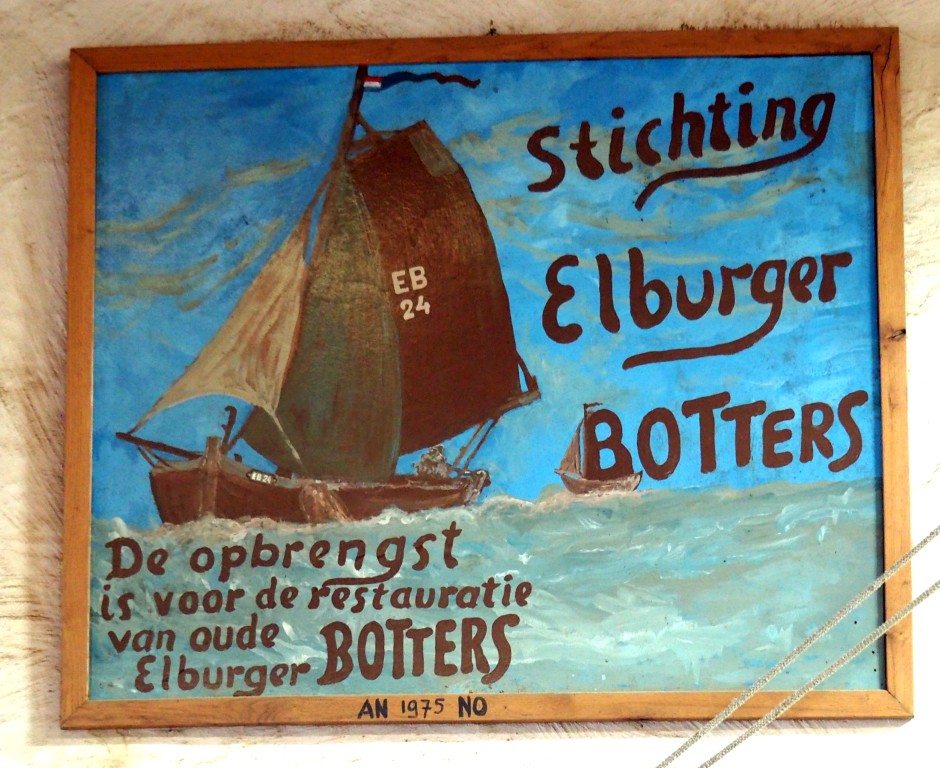 Stichting
Elburger
BOTTERS
EB
24
EB 24
De opbrengst
is voor de restauratie
van oude
Elburger BOTTERS
AN 1975 NO